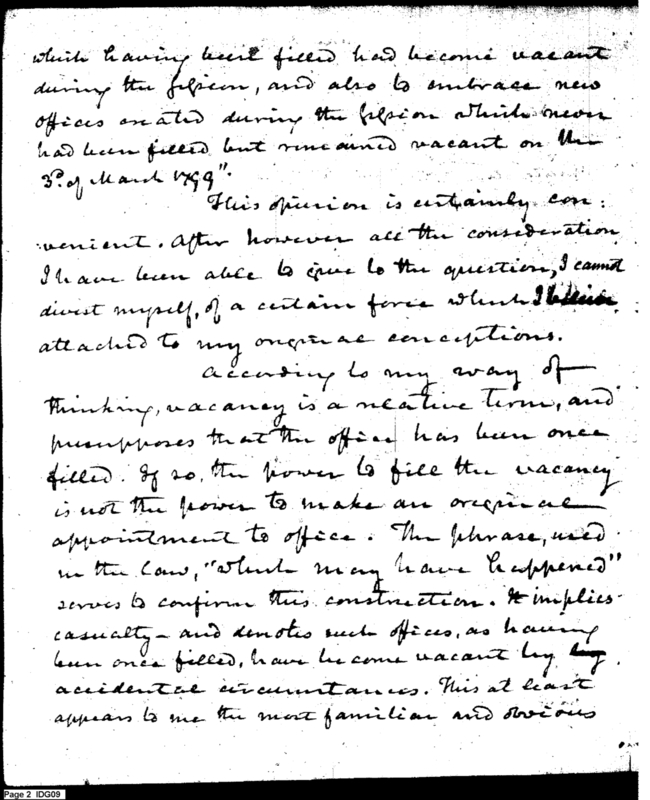 which having been filled had become vacant
during the session, and also to embrace new
offices created during the session which never
had been filled but remained vacant on the
3d. of March 1799".
This opinion is certainly con:
venient. After however all the consideration
I have been able to give to the question, I cannot
divest myself, of a certain force which I believe
attached to my original conceptions.
According to my way of
thinking, vacancy is a relative term, and
presupposes that the office has been once
filled. If so, the power to fill the vacancy
is not the power to make an original
appointment to office. The phrase, used
in the law, "which may have happened"
serves to confirm this construction. It implies
casualty - and denotes such offices, as having
been once filled, have become vacant by by
accidental circumstances. This at least
appears to me the most familiar and obvious
Page 2 IDG09